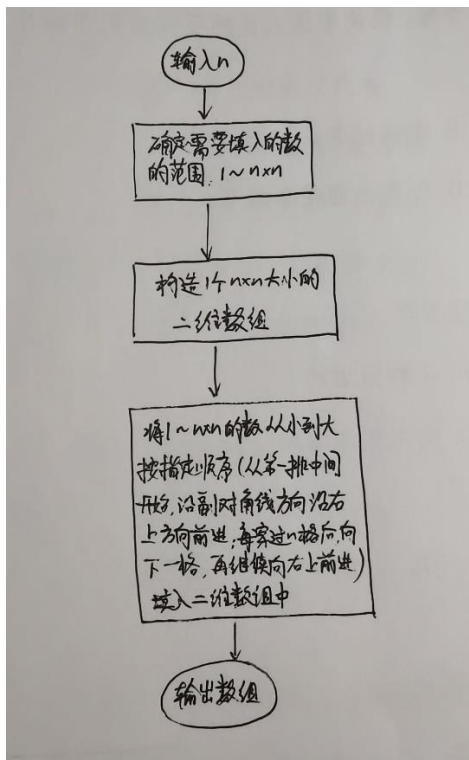 输入n
确定需要填入的数
的范围.1~n×n
构造1个n×n大小的
二维数组
将1~n×n的数从小到大
按指定顺序(从第一排中间
开始,沿副对角线方向沿右
上方向前进;每穿过n格后,向
下一格,再继续向右上前进)
填入二维数组中
输出数组